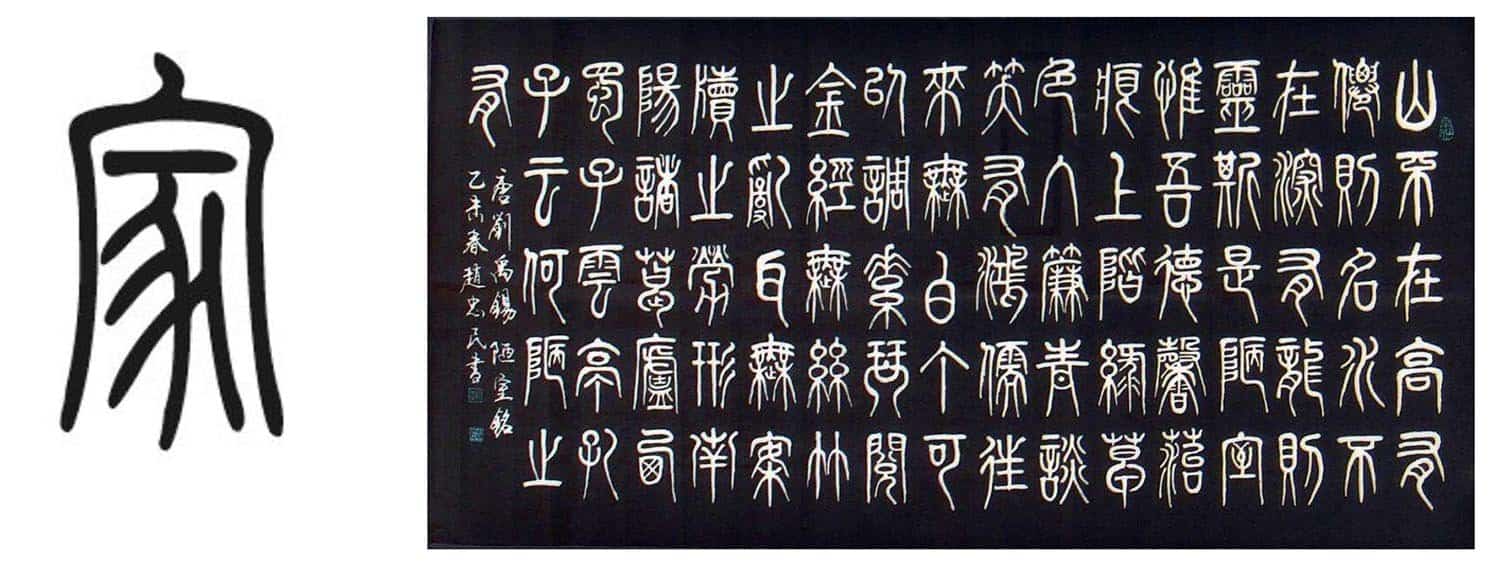 家
山不在高有
僊則名水不
在深有龍則
靈斯是陋室
惟吾德馨苔
痕上階綠草
色入簾青談
笑有鴻儒往
來無白丁可
以調素琴閱
金經無絲竹
之亂耳無案
牘之勞形南
陽諸葛廬西
蜀子雲亭孔
子云何陋之
有
唐劉禹錫陋室銘
乙未春趙忠民書